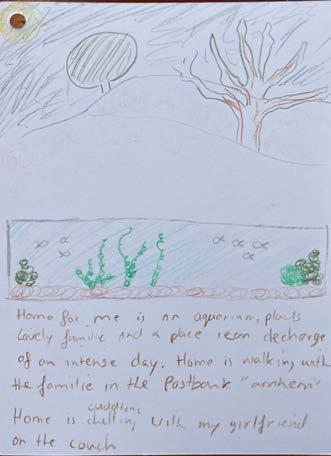 Home for me is an aquarium, plants
Lovely familie and a place ican decharge
of an intense day. Home is walking with
the familie in the Postbank "arnhem"
Home is cuddling, chelling with my girlfriend
on the couch